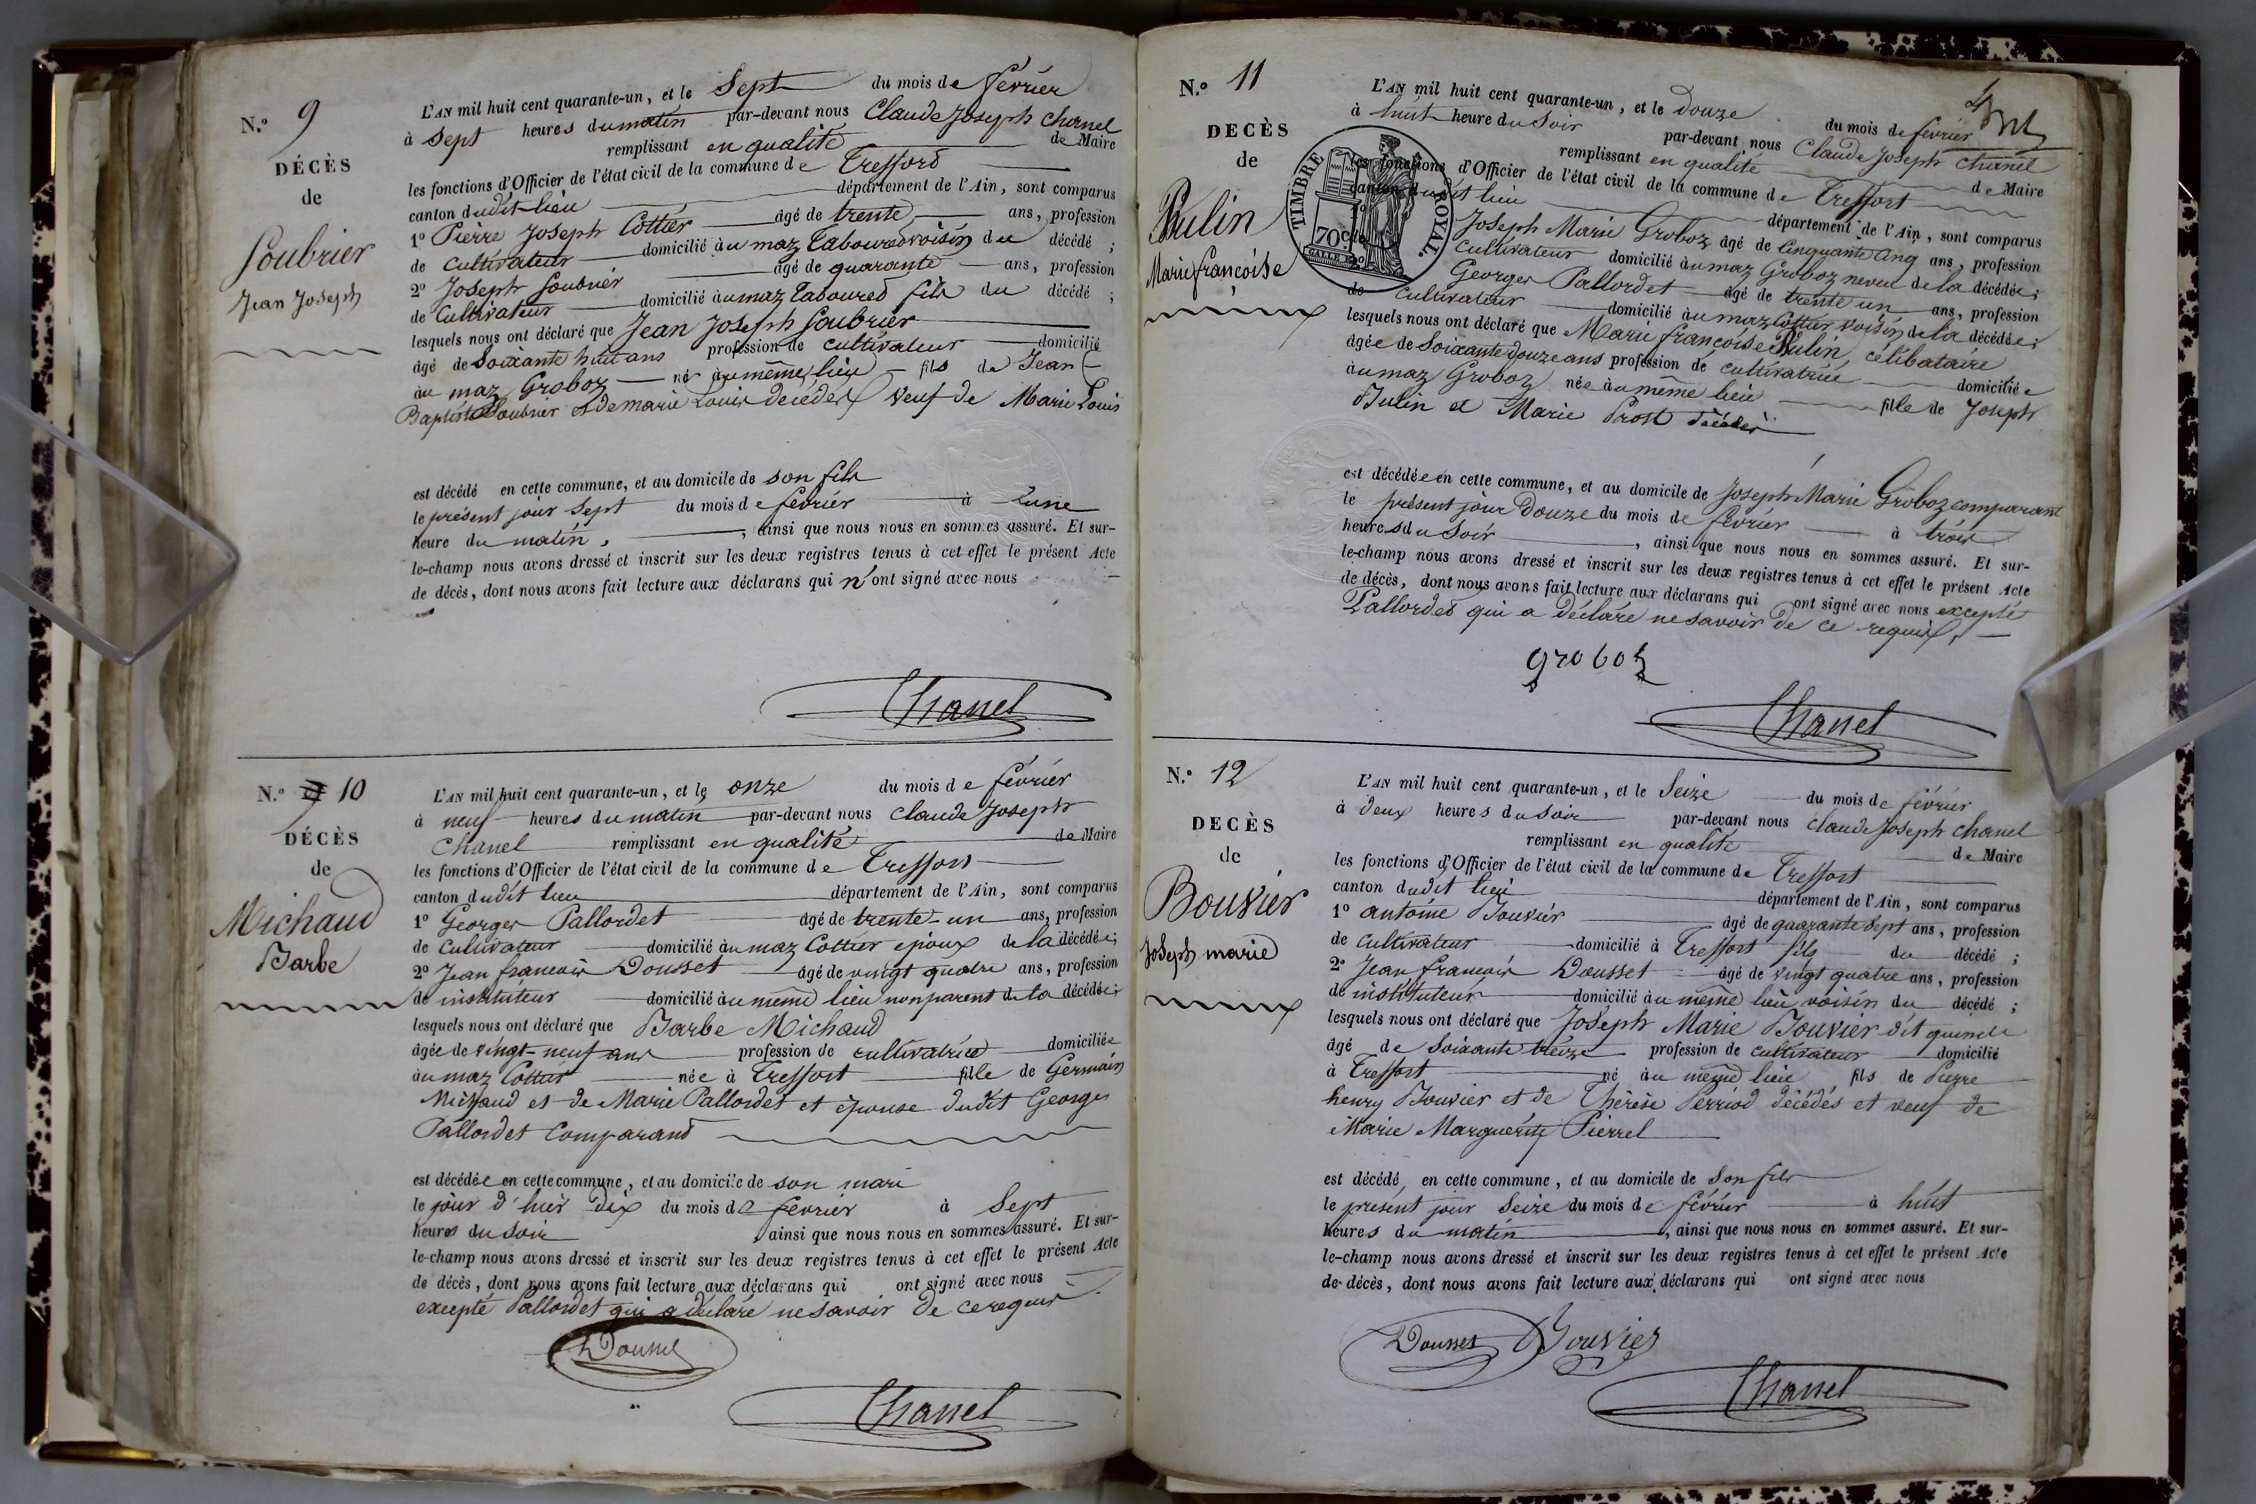 N.º 9
DÉCÈS
de
Soubrier
Jean Joseph
L'AN mil huit cent quarante-un, et le Sept du mois de février
à sept heures du matin par-devant nous Claude Joseph Chanel
remplissant en qualité de Maire
les fonctions d'Officier de l'état civil de la commune de Treffort
canton dudit lieu département de l'Ain, sont comparus
1º Pierre Joseph Cottier âgé de trente ans, profession
de cultivateur domicilié au maz Tabouret voisin du décédé ;
2º Joseph Soubrier âgé de quarante ans, profession
de Cultivateur domicilié au maz Tabouret fils du décédé ;
lesquels nous ont déclaré que Jean Joseph Soubrier
âgé de Soixante huit ans profession de cultivateur domicilié
au maz Groboz né au même lieu fils de Jean
Baptiste Soubrier et de marie Louis décédés veuf de Marie Louis
est décédé en cette commune, et au domicile de son fils
le présent jour Sept du mois de février à l'une
heure du matin, ainsi que nous nous en sommes assuré. Et sur-
le-champ nous avons dressé et inscrit sur les deux registres tenus à cet effet le présent Acte
de décès, dont nous avons fait lecture aux déclarans qui n'ont signé avec nous
Chanel
N.º 10
DÉCÈS
de
Michaud
Barbe
L'AN mil huit cent quarante-un, et le onze du mois de février
à neuf heures du matin par-devant nous Claude Joseph
Chanel remplissant en qualité de Maire
les fonctions d'Officier de l'état civil de la commune de Treffort
canton dudit lieu département de l'Ain, sont comparus
1º Georges Pallordet âgé de trente-un ans, profession
de cultivateur domicilié au maz Cottier époux de la décédée ;
2º Jean françois Dousset âgé de vingt quatre ans, profession
de instituteur domicilié au même lieu non parent de la décédée ;
lesquels nous ont déclaré que Barbe Michaud
âgée de vingt-neuf ans profession de cultivatrice domiciliée
au maz Cottier née à Treffort fille de Germain
Michaud et de Marie Pallordet et épouse dudit Georges
Pallordet Comparand
est décédée en cette commune, et au domicile de son mari
le jour d'hier dix du mois de février à Sept
heures du soir ainsi que nous nous en sommes assuré. Et sur-
le-champ nous avons dressé et inscrit sur les deux registres tenus à cet effet le présent Acte
de décès, dont nous avons fait lecture aux déclarans qui ont signé avec nous
excepté Pallordet qui a déclaré ne savoir de ce requis
Dousset
Chanel
N.º 11
DECÈS
de
Bulin
Marie françoise
TIMBRE ROYAL
70 c.
L'AN mil huit cent quarante-un, et le douze du mois de février
à huit heure du Soir par-devant nous Claude Joseph Chanel
remplissant en qualité de Maire
les fonctions d'Officier de l'état civil de la commune de Treffort
canton dudit lieu département de l'Ain, sont comparus
Joseph Marie Groboz âgé de Cinquante Cinq ans, profession
cultivateur domicilié au maz Groboz neveu de la décédée ;
Georges Pallordet âgé de trente un ans, profession
de cultivateur domicilié au maz Cottier voisin de la décédée ;
lesquels nous ont déclaré que Marie françoise Bulin, célibataire
âgée de Soixante douze ans profession de cultivatrice domiciliée
au maz Groboz née au même lieu fille de Joseph
Bulin et Marie Prost décédés
est décédée en cette commune, et au domicile de Joseph Marie Groboz comparant
le présent jour Douze du mois de février à trois
heures du Soir, ainsi que nous nous en sommes assuré. Et sur-
le-champ nous avons dressé et inscrit sur les deux registres tenus à cet effet le présent Acte
de décès, dont nous avons fait lecture aux déclarans qui ont signé avec nous excepté
Pallordet qui a déclaré ne savoir de ce requis
groboz
Chanel
N.º 12
DECÈS
de
Bouvier
Joseph marie
L'AN mil huit cent quarante-un, et le Seize du mois de février
à deux heures du soir par-devant nous Claude Joseph Chanel
remplissant en qualité de Maire
les fonctions d'Officier de l'état civil de la commune de Treffort
canton dudit lieu département de l'Ain, sont comparus
1º antoine Bouvier âgé de quarante Sept ans, profession
de cultivateur domicilié à Treffort fils du décédé ;
2º Jean françois Dousset âgé de vingt quatre ans, profession
de instituteur domicilié au même lieu voisin du décédé ;
lesquels nous ont déclaré que Joseph Marie Bouvier dit
âgé de Soixante treize profession de cultivateur domicilié
à Treffort né au même lieu fils de Pierre
henry Bouvier et de Thérèse Perriod décédés et veuf de
Marie Marguerite Pierrel
est décédé en cette commune, et au domicile de Son fils
le présent jour Seize du mois de février à huit
heures du matin, ainsi que nous nous en sommes assuré. Et sur-
le-champ nous avons dressé et inscrit sur les deux registres tenus à cet effet le présent Acte
de décès, dont nous avons fait lecture aux déclarans qui ont signé avec nous
Dousset Bouvier
Chanel